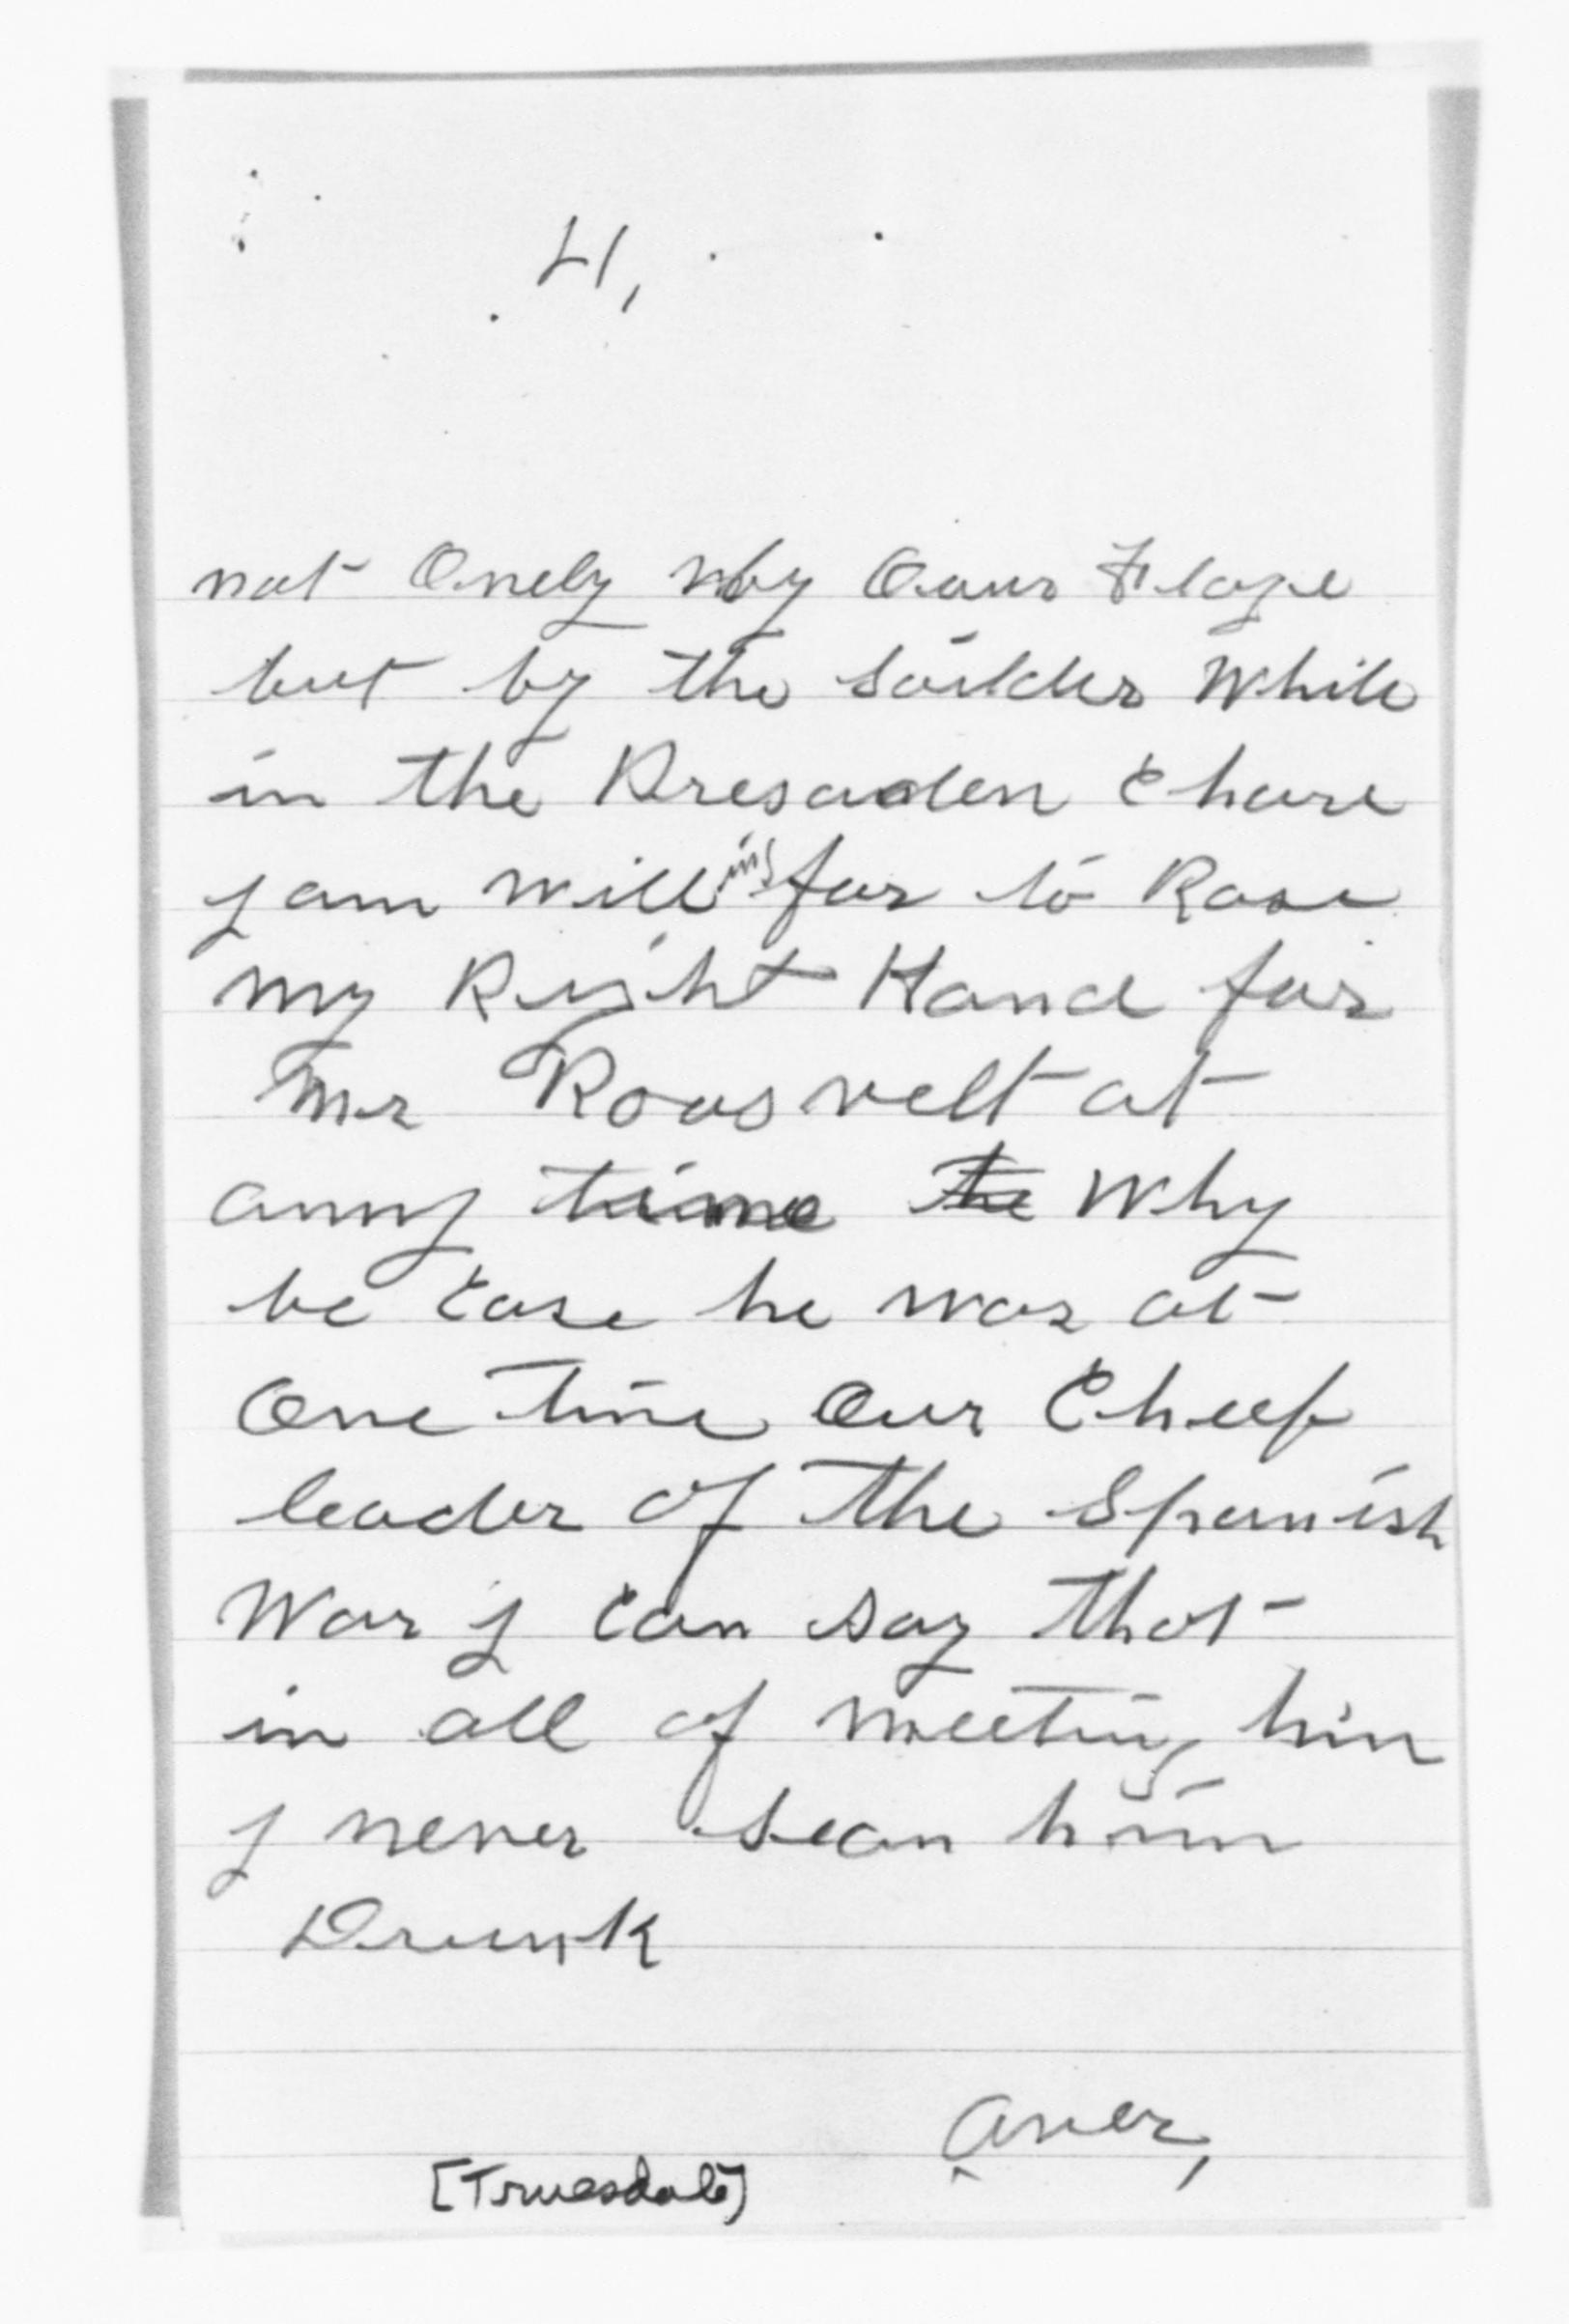 4,
not Onely by Oour Flage
but by the Soilder While
in the Presaden Chare
I am willing for to Rase
my Right Hand for
Mr Roosvelt at
anny time Why
be Case he was at
One time Our Cheef
leader of The Spanish
War I Can say that
in all of meeting him
I never sean him
Drunk
Over,
[Truesdale]